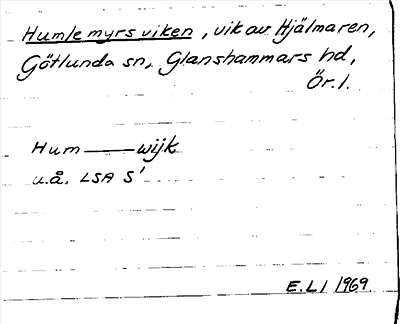 Humlemyrsviken, vik av Hjälmaren,
Götlunda sn, Glanshammars hd,
Ör. l.
Hum——wijk
u.å. LSA S'
E.L I 1969